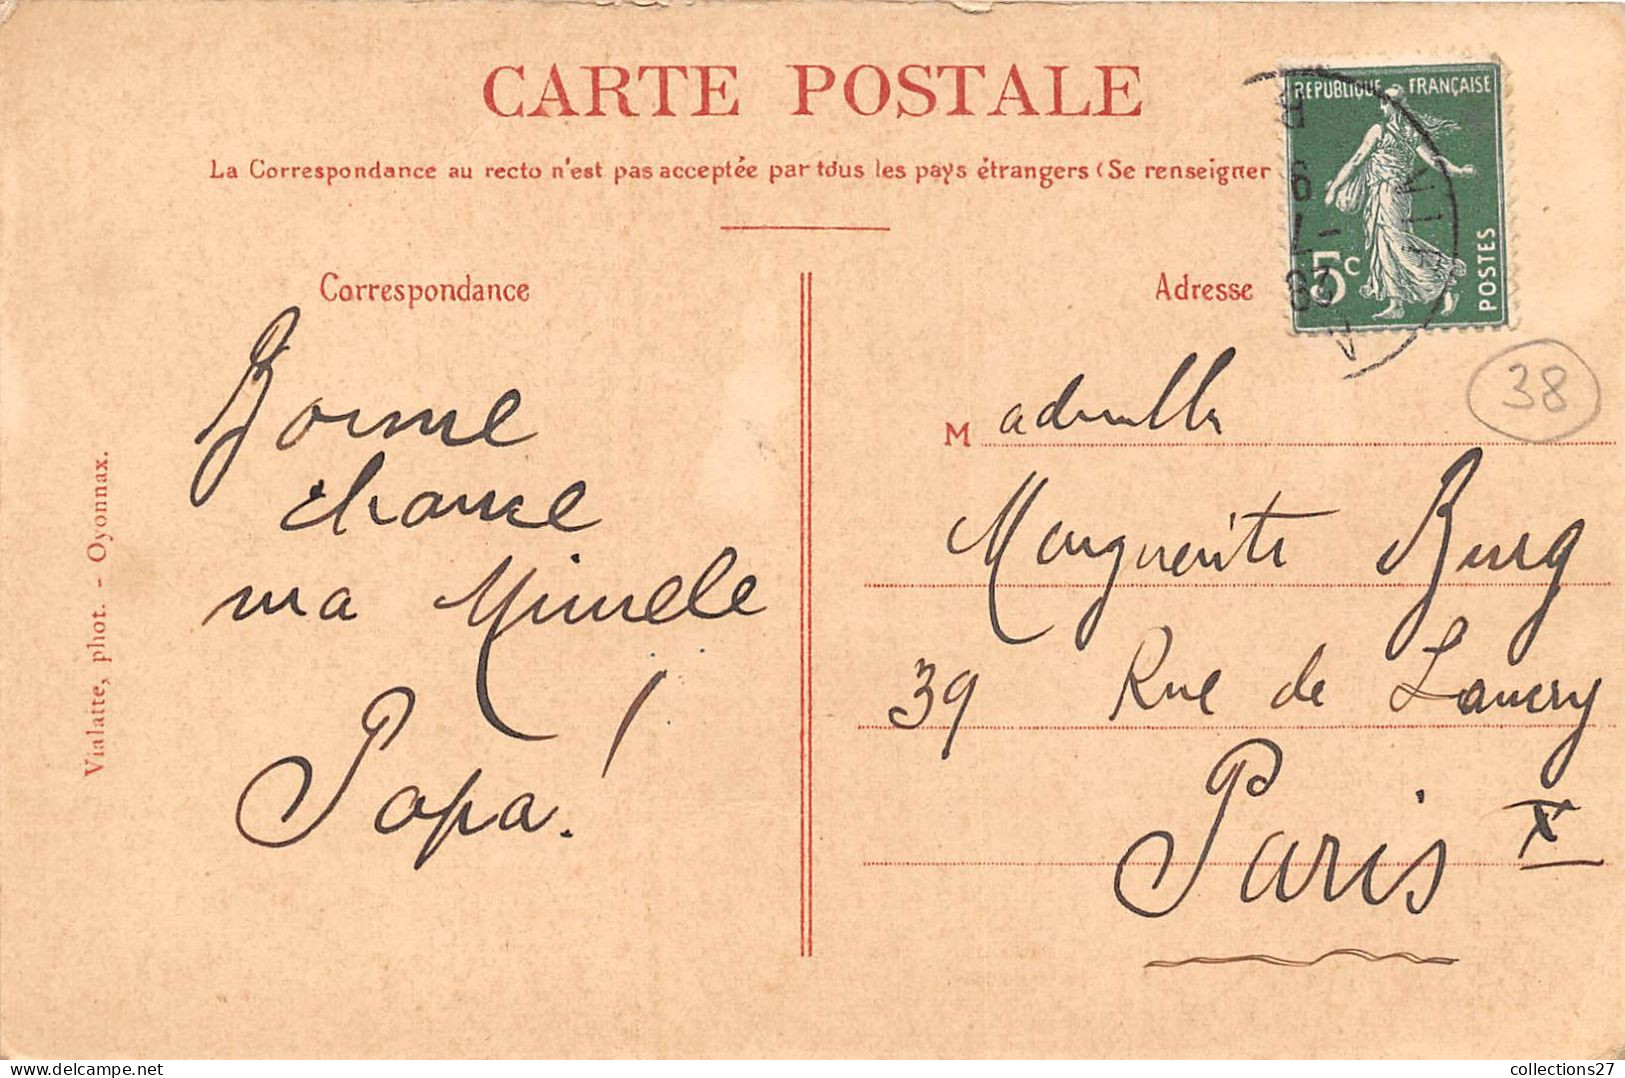 CARTE POSTALE
La Correspondance au recto n'est pas acceptée par tous les pays étrangers (Se renseigner
REPUBLIQUE FRANÇAISE
5c
POSTES
Correspondance
Bonne
chance
ma Mimele
Papa!
Vialatte, phot. - Oyonnax.
Adresse
38
M
Marguerite Burg
39 Rue de Lancry
Paris X
collections27